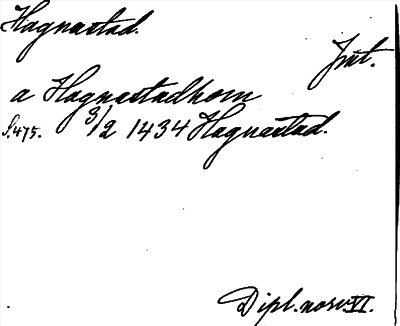 Hagnastad.
Jät.
a Hagnastadhom
S.475. 3/2 1434 Hagnastad.
Dipl. norv. VI.